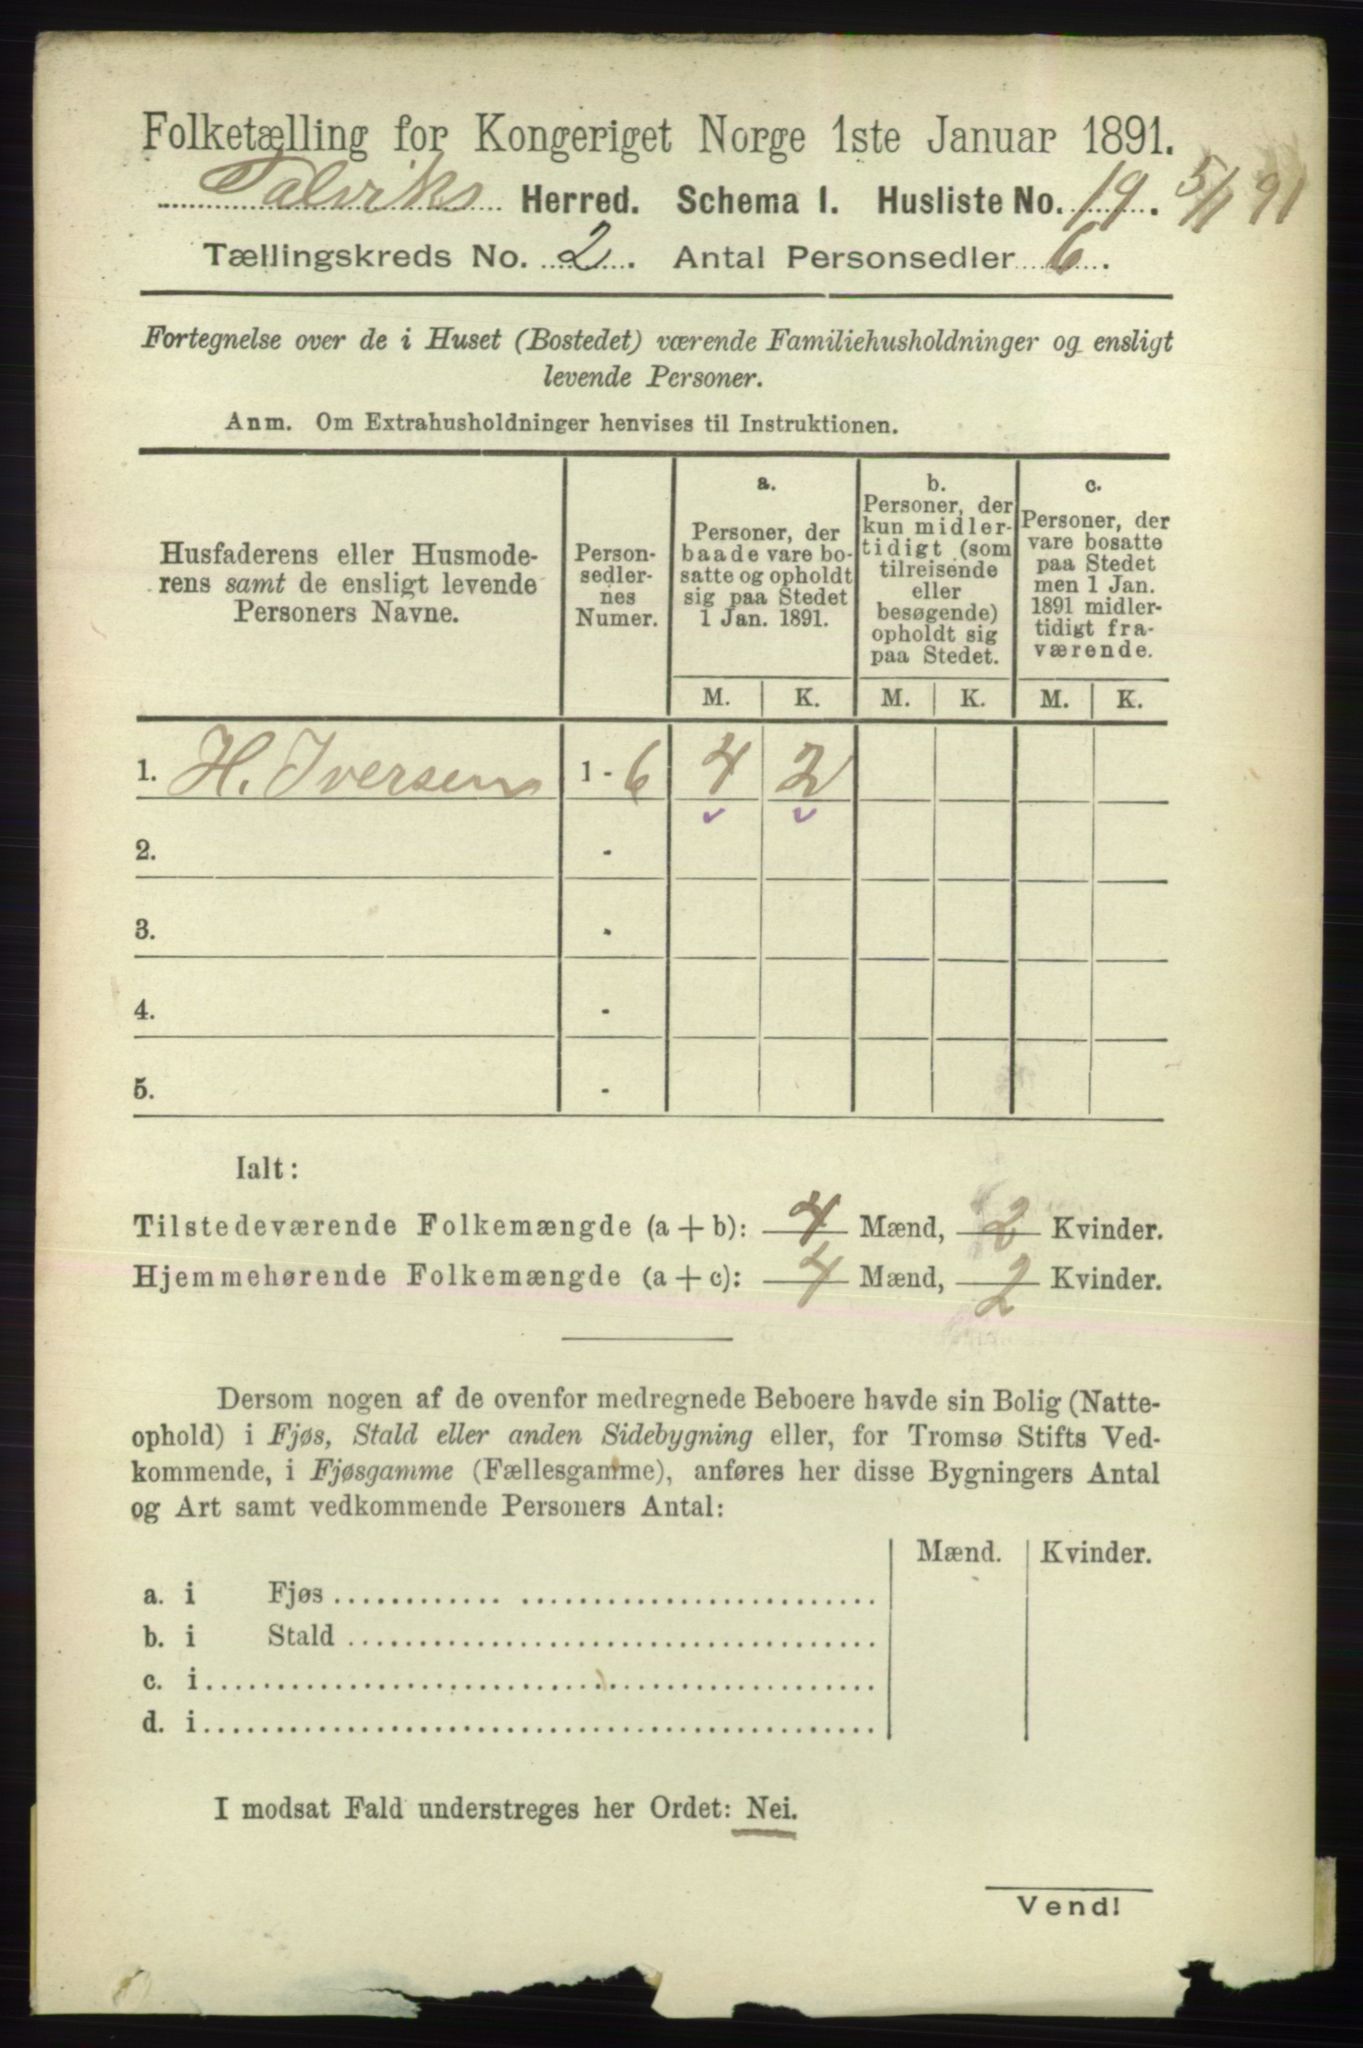 Folketælling for Kongeriget Norge 1ste Januar 1891.
Talviks Herred. Schema I. Husliste No. 19. 5/1 91
Tællingskreds No. 2. Antal Personsedler 6.
Fortegnelse over de i Huset (Bostedet) værende Familiehusholdninger og ensligt
levende Personer.
Anm. Om Extrahusholdninger henvises til Instruktionen.
Husfaderens eller Husmode-
rens samt de ensligt levende
Personers Navne.
Person-
sedler-
nes
Numer.
a.
Personer, der
baade vare bo-
satte og opholdt
sig paa Stedet
1 Jan. 1891.
b.
Personer, der
kun midler-
tidigt (som
tilreisende
eller
besøgende)
opholdt sig
paa Stedet.
c.
Personer, der
vare bosatte
paa Stedet
men 1 Jan.
1891 midler-
tidigt fra-
værende.
M. K. M. K. M. K.
1. H. Iversen 1 - 6 4 2
2. -
3. -
4. -
5. -
Ialt:
Tilstedeværende Folkemængde (a + b): 4 Mænd, 2 Kvinder.
Hjemmehørende Folkemængde (a + c): 4 Mænd, 2 Kvinder.
Dersom nogen af de ovenfor medregnede Beboere havde sin Bolig (Natte-
ophold) i Fjøs, Stald eller anden Sidebygning eller, for Tromsø Stifts Ved-
kommende, i Fjøsgamme (Fællesgamme), anføres her disse Bygningers Antal
og Art samt vedkommende Personers Antal:
Mænd. Kvinder.
a. i Fjøs
b. i Stald
c. i
d. i
I modsat Fald understreges her Ordet: Nei.
Vend!